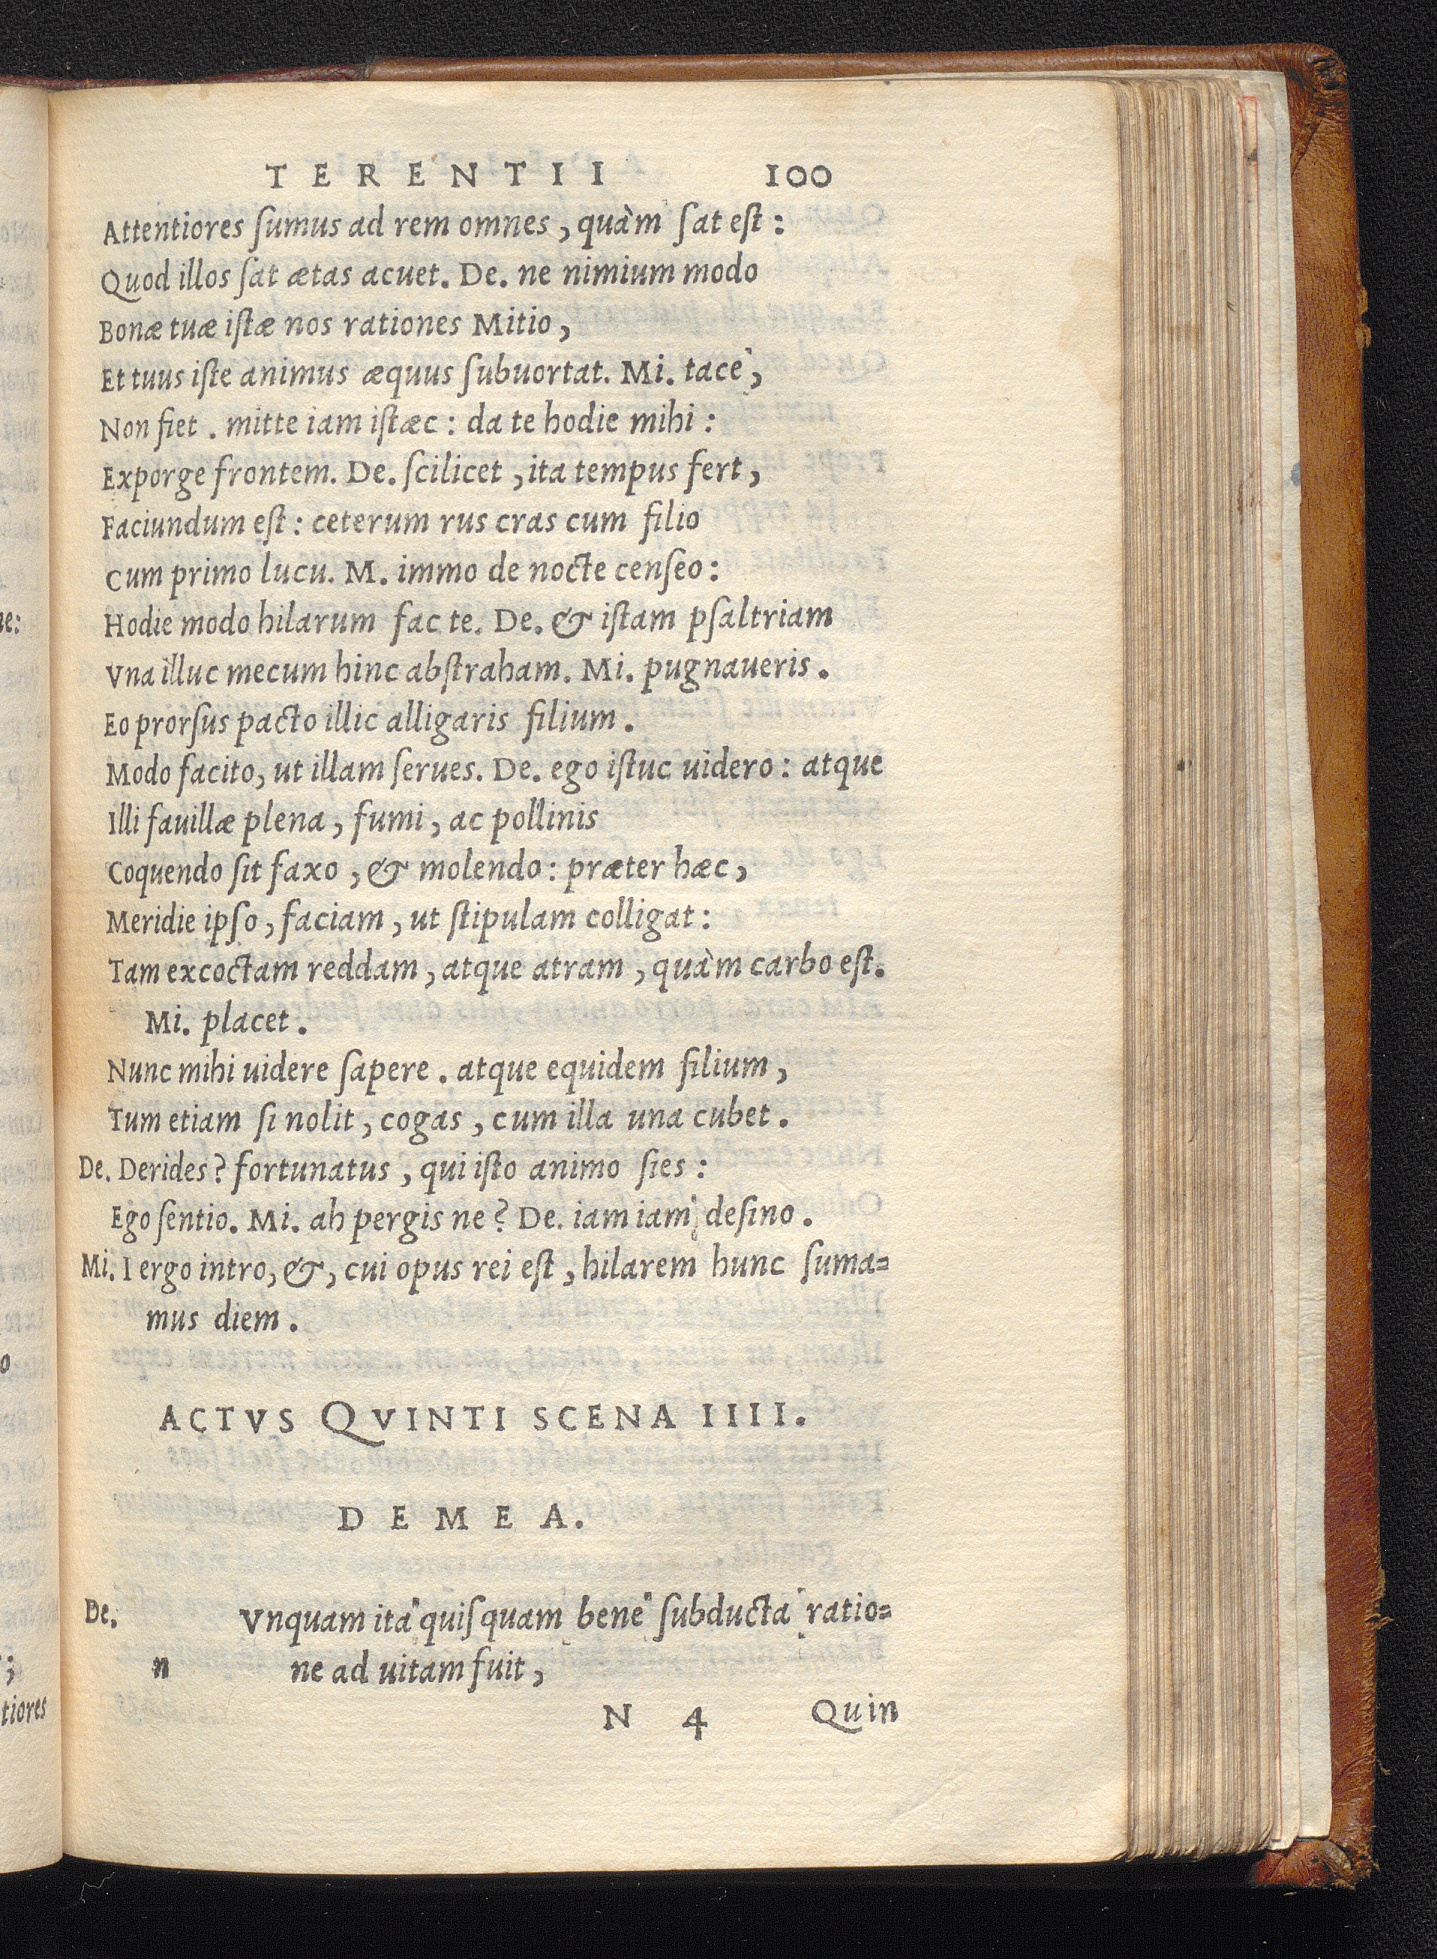 TERENTII 100
Attentiores ſumus ad rem omnes, quàm ſat eſt:
Quod illos ſat ætas acuet. De. ne nimium modo
Bonæ tuæ iſtæ nos rationes Mitio,
Et tuus iſte animus æquus ſubuortat. Mi. tace,
Non fiet. mitte iam iſtæc: da te hodie mihi:
Exporge frontem. De. ſcilicet, ita tempus fert,
Faciundum eſt: ceterum rus cras cum filio
Cum primo lucu. M. immo de nocte cenſeo:
Hodie modo hilarum fac te. De. & iſtam pſaltriam
Vna illuc mecum hinc abſtraham. Mi. pugnaueris.
Eo prorſus pacto illic alligaris filium.
Modo facito, ut illam ſerues. De. ego iſtuc uidero: atque
Illi fauillæ plena, fumi, ac pollinis
Coquendo ſit faxo, & molendo: præter hæc,
Meridie ipſo, faciam, ut ſtipulam colligat:
Tam excoctam reddam, atque atram, quàm carbo eſt.
Mi. placet.
Nunc mihi uidere ſapere. atque equidem filium,
Tum etiam ſi nolit, cogas, cum illa una cubet.
De. Derides? fortunatus, qui iſto animo ſies:
Ego ſentio. Mi. ah pergis ne? De. iam iam deſino.
Mi. I ergo intro, &, cui opus rei eſt, hilarem hunc ſuma=
mus diem.
ACTVS QVINTI SCENA IIII.
DEMEA.
De. Vnquam ita quiſquam bene ſubducta ratio=
n ne ad uitam fuit,
N 4 Quin
ne:
o
;
tiores